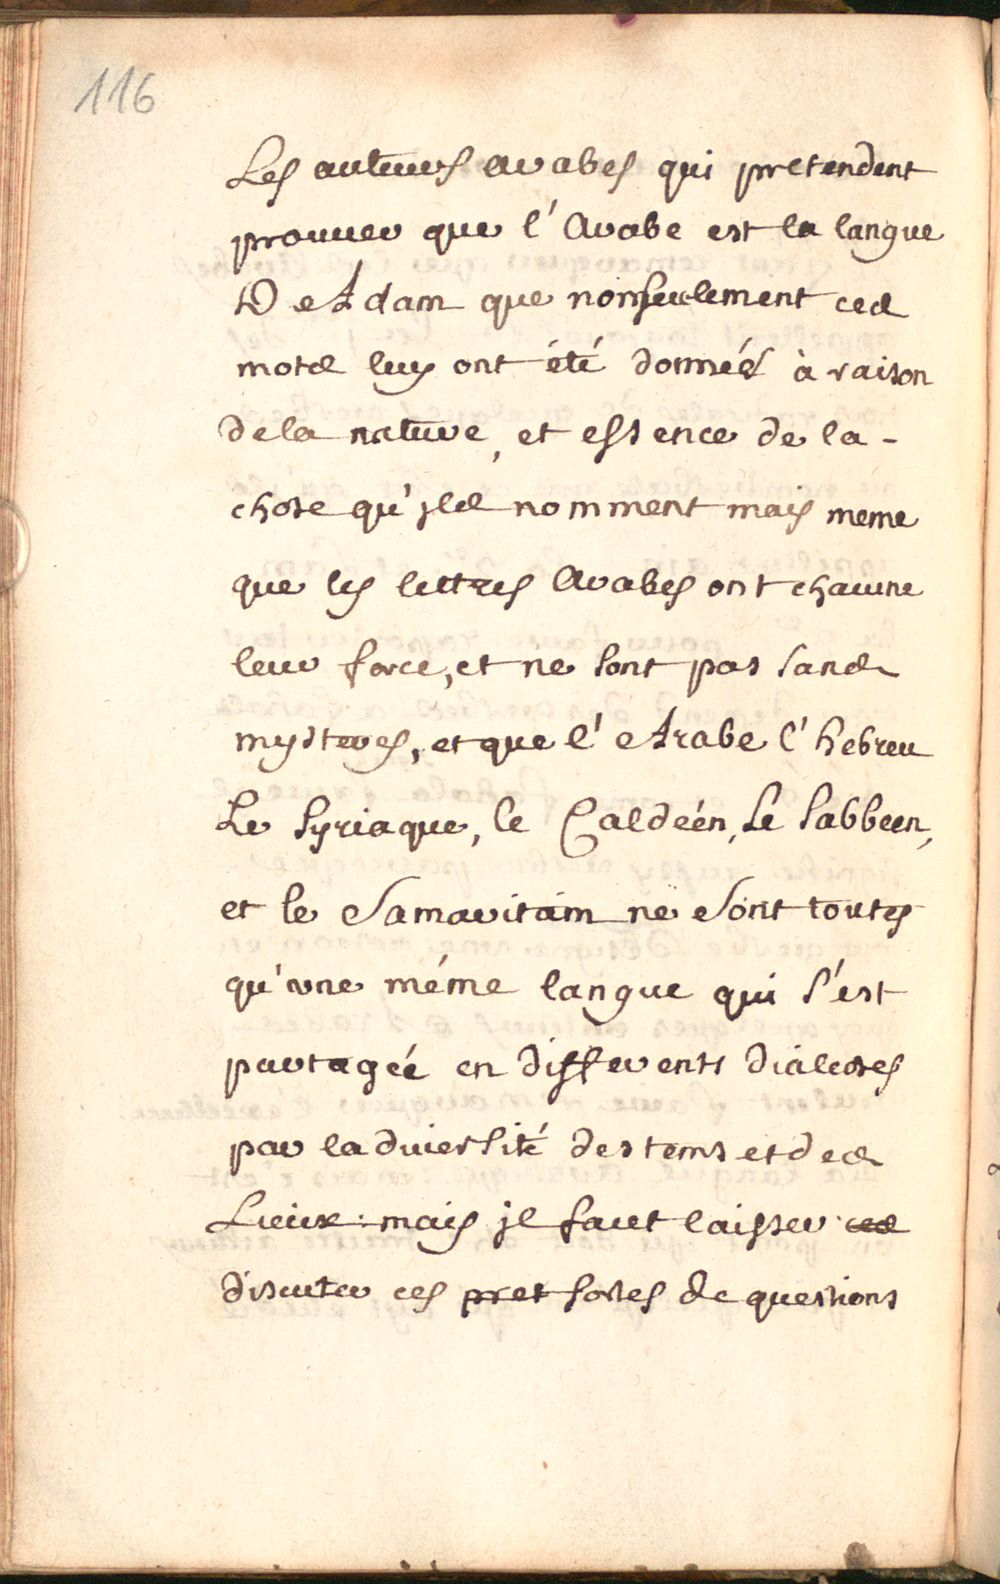 116
Les auteurs arabes qui pretendent
prouuer que l'Arabe est la langue
D'Adam que nonseulement ces
mots luy ont été donnéś à raison
de la nature, et essence de la-
chose qu'jls nomment mais meme
que les lettres Arabes ont chacune
leur force, et ne sont pas sans
mysteres, et que l'Arabe l'hebreu
Le syriaque, le Caldéen, Le sabbeen,
et le Samaritain ne sont toutes
qu'vne méme langue qui s'est
partagée en differents dialectes
par la diuersité des tems et des
Lieux: mais jl faut laisser ces
discuter ces pret sortes de questions